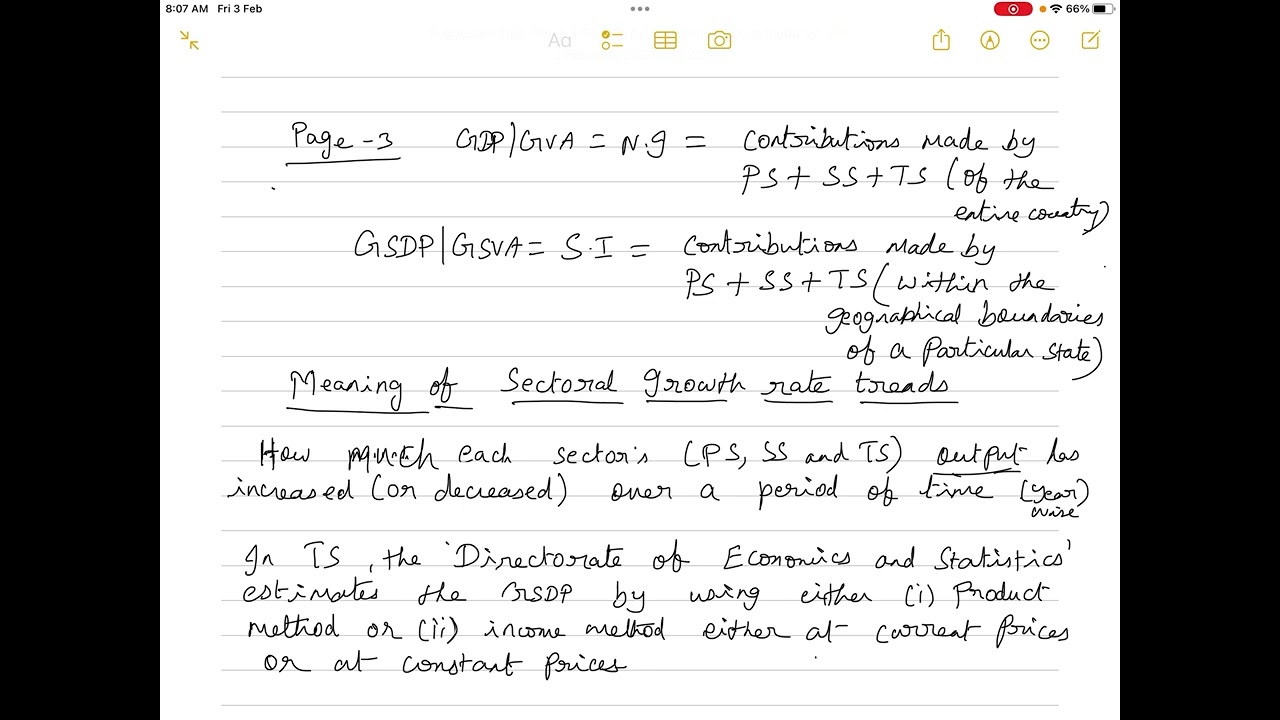 8:07 AM Fri 3 Feb
66%
Aa
Page-3 GDP|GVA = N.I = Contributions made by
PS + SS + TS (of the
entire country)
GSDP|GSVA = S.I = Contributions made by
PS + SS + TS (within the
geographical boundaries
of a particular state)
Meaning of Sectoral growth rate treads
How much each sector's (PS, SS and TS) output has
increased (or decreased) over a period of time (year)
wise
In TS, the 'Directorate of Economics and Statistics'
estimates the GSDP by using either (i) Product
method or (ii) income method either at current prices
or at constant prices